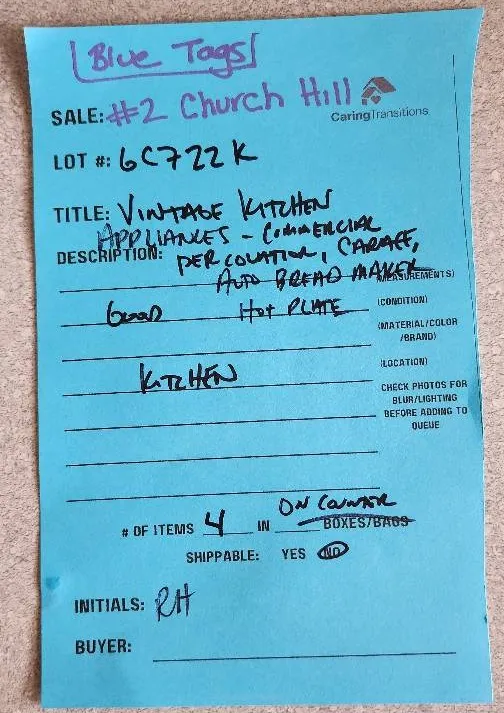 Blue Tags
SALE: #2 Church Hill
CaringTransitions
LOT #: 6C722K
TITLE: VINTAGE KITCHEN
APPLIANCES - COMMERCIAL
DESCRIPTION: PERCOLATOR, CARAFE,
AUTO BREAD MAKER
(MEASUREMENTS)
GOOD HOT PLATE (CONDITION)
(MATERIAL/COLOR
/BRAND)
KITCHEN (LOCATION)
CHECK PHOTOS FOR
BLUR/LIGHTING
BEFORE ADDING TO
QUEUE
ON COUNTER
# OF ITEMS 4 IN BOXES/BAGS
SHIPPABLE: YES NO
INITIALS: RH
BUYER: